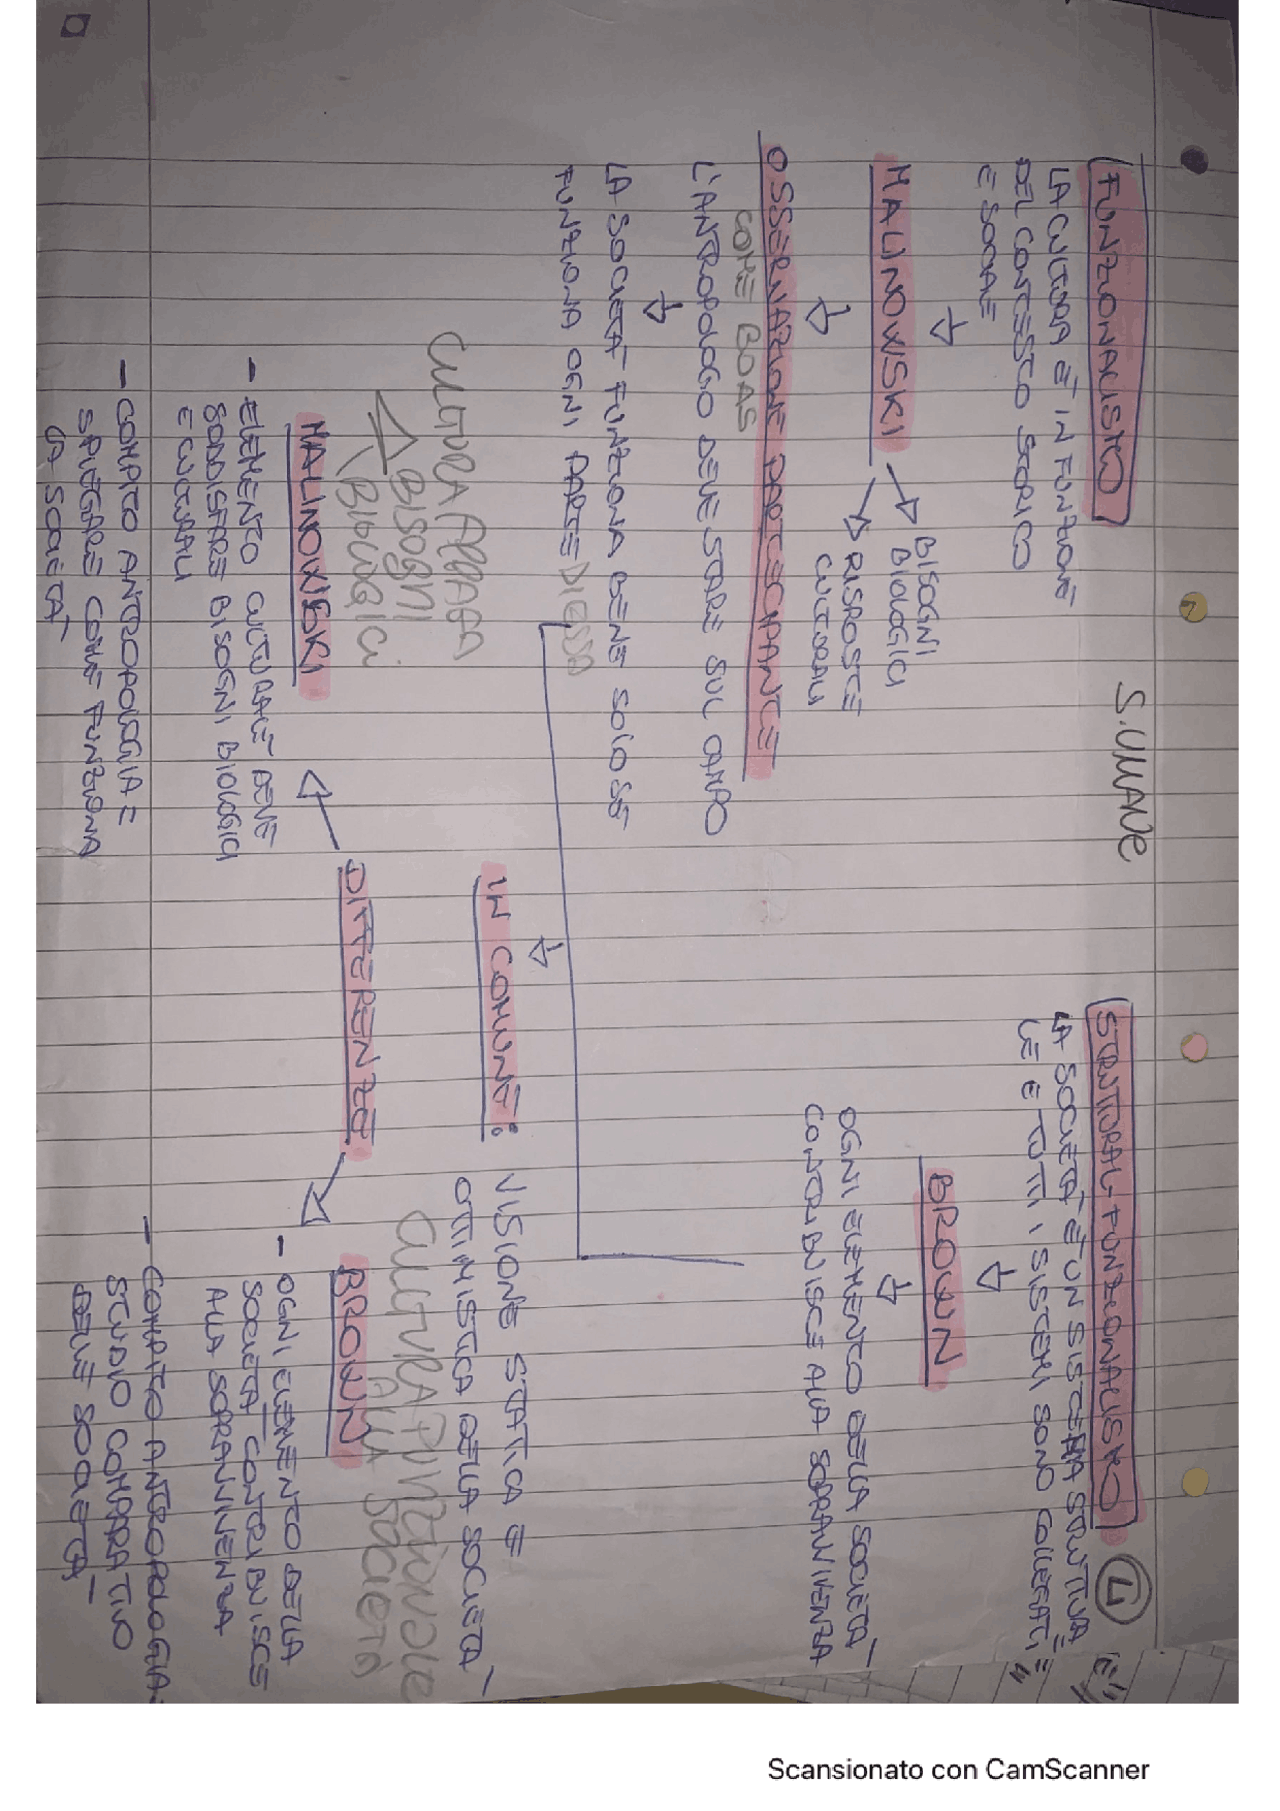 S. UMANE
FUNZIONALISMO
LA CULTURA È IN FUNZIONE
DEL CONTESTO STORICO
E SOCIALE
MALINOWSKI
BISOGNI
BIOLOGICI
RISPOSTE
CULTURALI
OSSERVAZIONE PARTECIPANTE
COME BOAS
L'ANTROPOLOGO DEVE STARE SUL CAMPO
LA SOCIETÀ FUNZIONA BENE SOLO SE
FUNZIONA OGNI PARTE DI ESSA
STRUTTURAL-FUNZIONALISMO
4
LA SOCIETÀ È UN SISTEMA STRUTTURA
LE E TUTTI I SISTEMI SONO COLLEGATI
BROWN
OGNI ELEMENTO DELLA SOCIETÀ
CONTRIBUISCE ALLA SOPRAVVIVENZA
IN COMUNE:
VISIONE STATICA E
OTTIMISTICA DELLA SOCIETÀ
DIFFERENZE
CULTURA APPAGA
BISOGNI
BIOLOGICI
MALINOWSKI
- ELEMENTO CULTURALE DEVE
SODDISFARE BISOGNI BIOLOGICI
E CULTURALI
- COMPITO ANTROPOLOGIA È
SPIEGARE COME FUNZIONA
LA SOCIETÀ
CULTURA FUNZIONALE
ALLA SOCIETÀ
BROWN
- OGNI ELEMENTO DELLA
SOCIETÀ CONTRIBUISCE
ALLA SOPRAVVIVENZA
- COMPITO ANTROPOLOGIA
STUDIO COMPARATIVO
DELLE SOCIETÀ
Scansionato con CamScanner